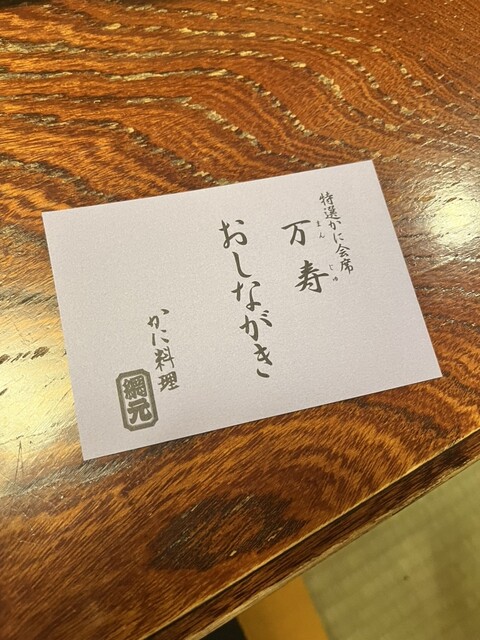 特選かに会席
万寿
まんじゅ
おしながき
かに料理
網元